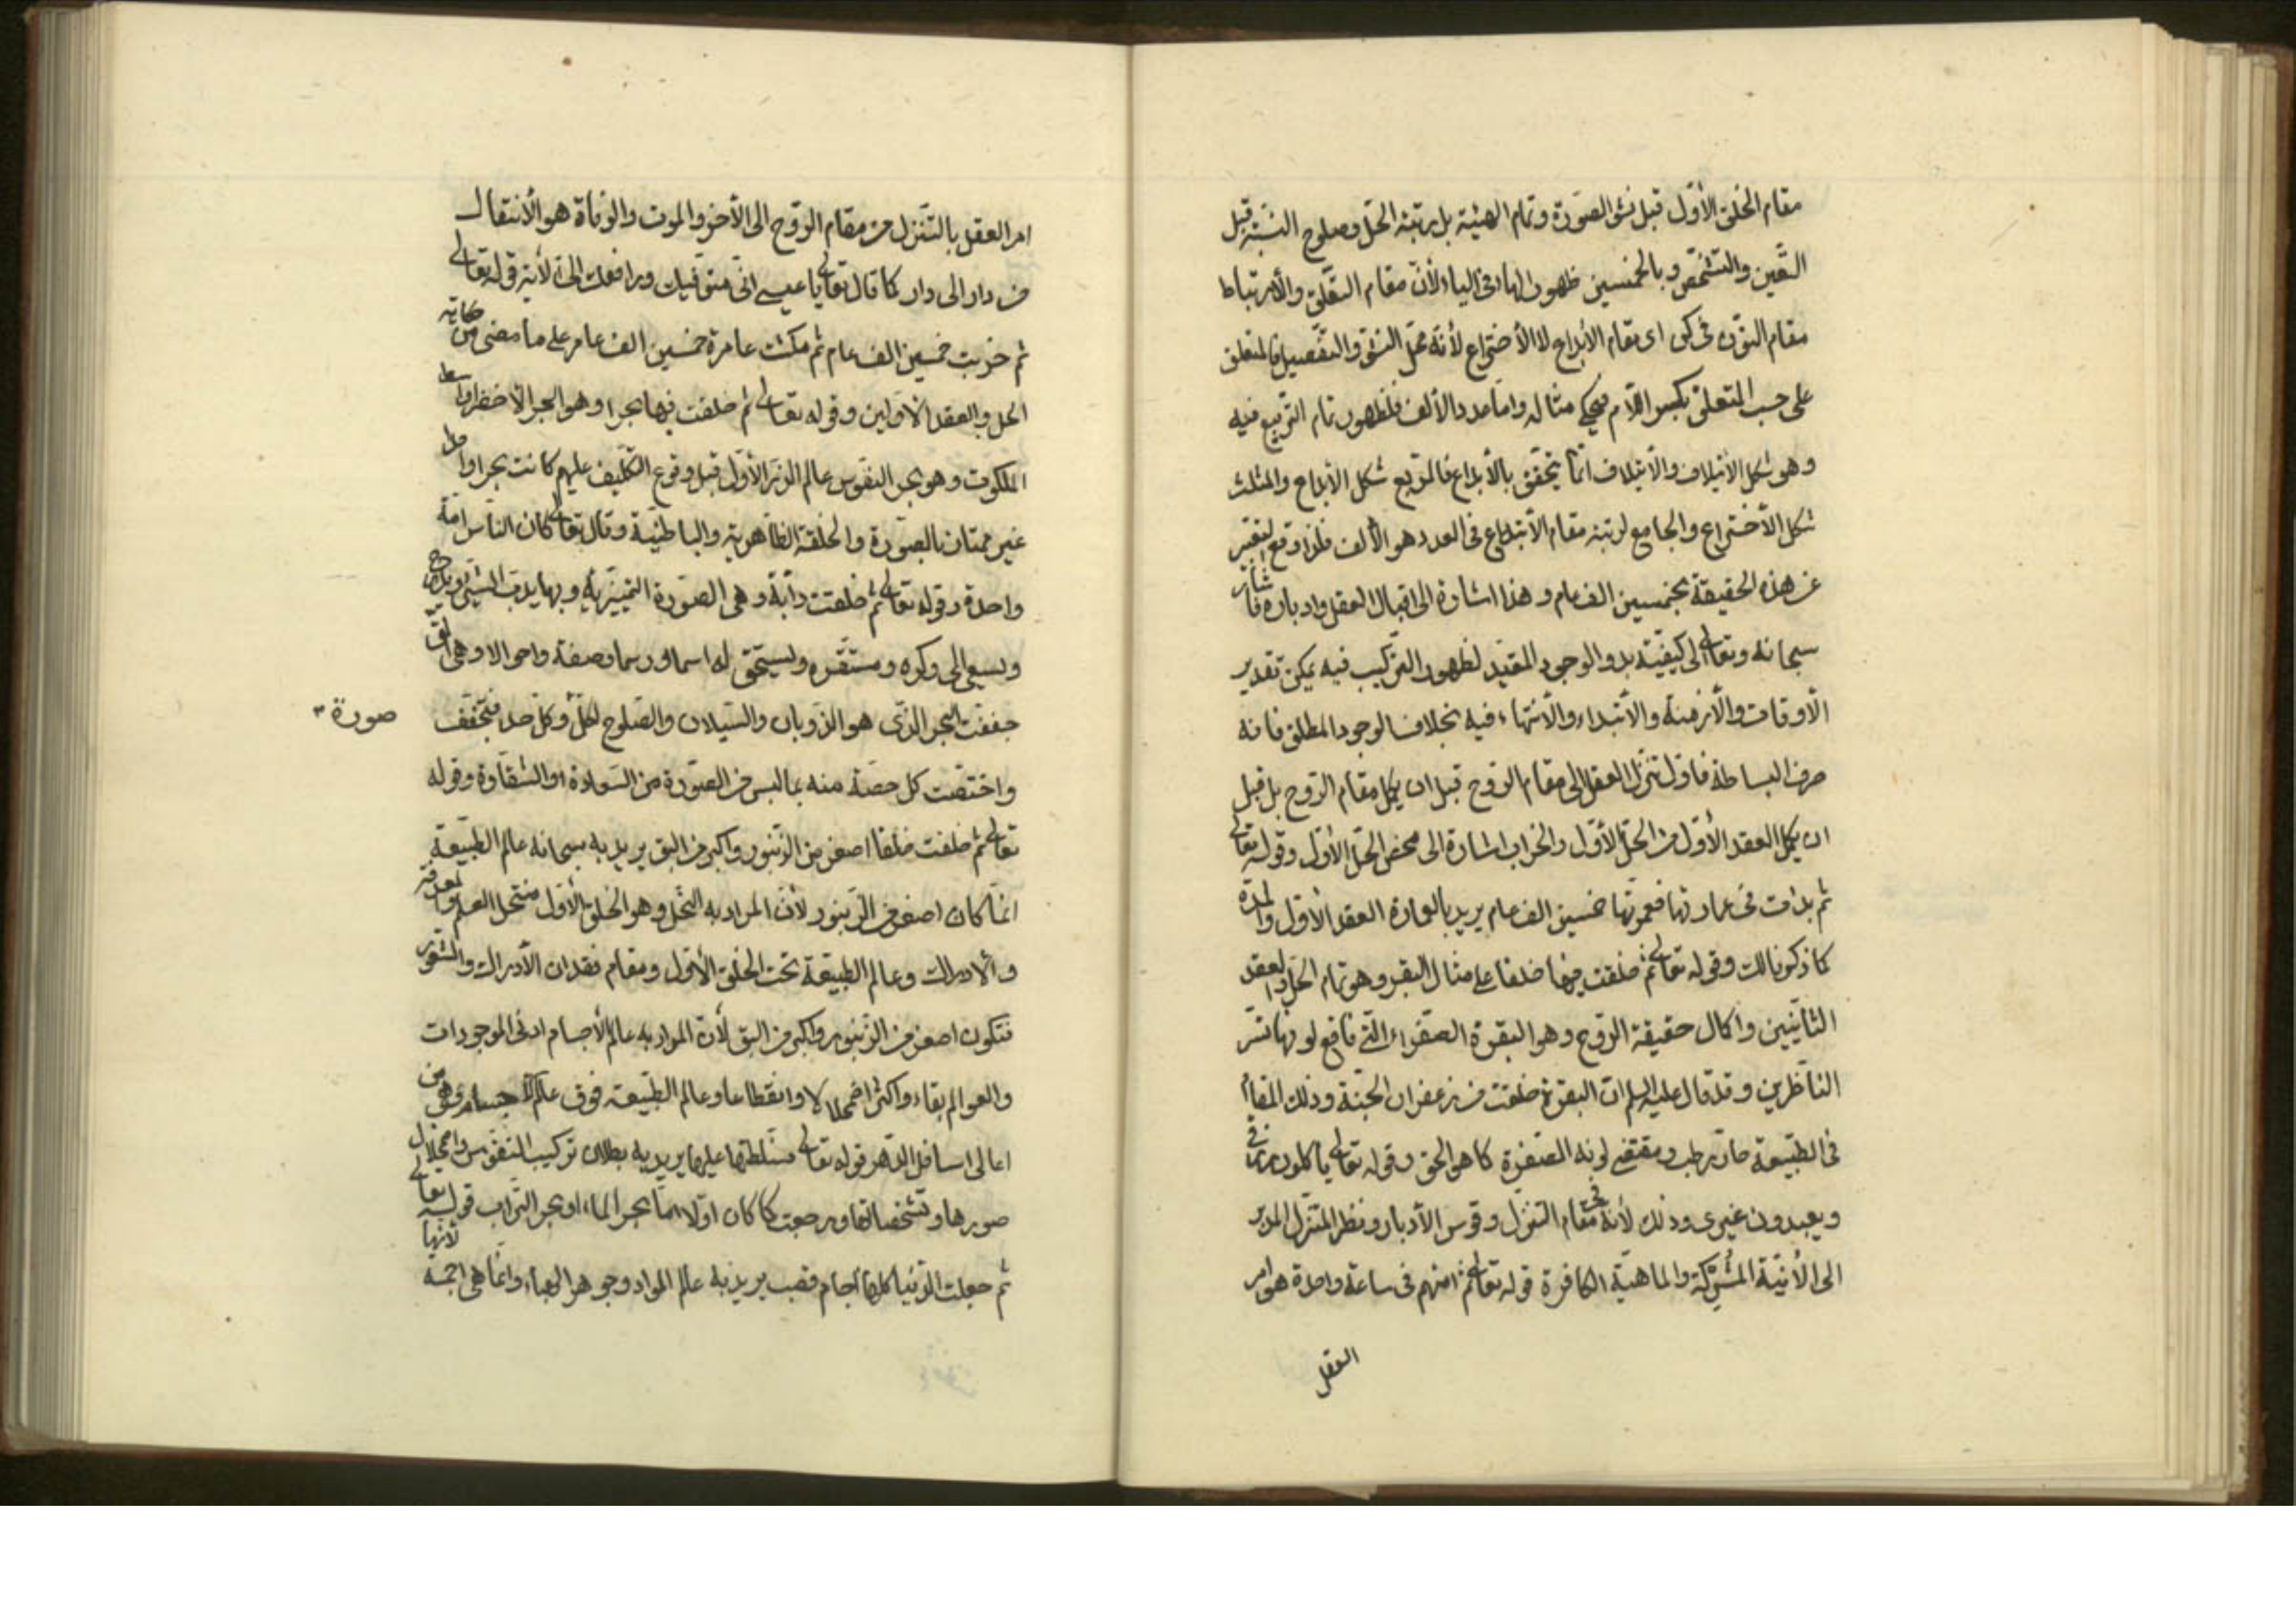 مقام الخلق الأوّل قبل نشو الصّورة وتمام الهيئة بل برتبة الحلّ وصلوح النسبة قبل
التعّين والتشخّص وبالخمسين ظهور الهاء في الياء لأنّ مقام التعّلق والأرتباط
مقام النوّن في كن اى مقام الأبداع لا الأختراع لأنّه محلّ النشو والتفّصيل فالمتعلق
على حسب المتعلّق بكسر اللّام فيحكى مثاله وامّا عدد الألف فلظهور تمام التربيع فيه
وهو شكل الأئتلاف والأئتلاف انّما يتحقّق بالأبداع فالتربيع شكل الأبداع والمثلث
شكل الأختراع والجامع لرتبة مقام الأبتداع في العدد هو الألف فلذا وقع التعّبير
عن هذه الحقيقة بخمسين الف عام وهذا اشارة الى اقبال العقل وادباره فأشار
سبحانه وتعالى الى كيفيّة بدو الوجود المقيّد لظهور التركيب فيه يمكن تقدير
الأوقات والأزمنة والأبتداء والأنتهاء فيه بخلاف الوجود المطلق فانه
صرف البساطة فاوّل تنزّل العقل الى مقام الروّح قبل ان يكمل مقام الروّح بل قبل
ان يكمل العقد الأوّل من الحلّ الأوّل والخراب اشارة الى محض الحلّ الأوّل وقوله تعالى
ثم بدات فى عمارتها فعمرتها خمسين الف عام يريد بالعمارة العقد الأوّل والمدّة
كما ذكرنا لك وقوله تعالى ثم خلقت فيها خلقا على مثال البقر وهو تمام الحلّ والعقد
الثانيّين واكمال حقيقة الروّح وهو البقرة الصفّراء التّى فاقع لونها تسّر
الناّظرين وقد قال عليه السلم ان البقرة خلقت من زعفران الجنّة وذلك المقام
فى الطبيّعة حارّ رطب ومقتضى لونه الصفرة كما هو الحق وقوله تعالى ياكلون رزقى
ويعبدون غيرى وذلك لأنه فى مقام التنزّل وقوس الأدبار ونظر المتنزل المدبر
الى الأنيّة المشركة والماهيّة الكافرة قوله تعالى ثم امتهم فى ساعة واحدة هو امر
العقل
امر العقل بالتنّزل من مقام الروّح الى الأخر والموت والوفاة هو الأنتقال
من دار الى دار كما قال تعالى يا عيسى انّى متوفّيك ورافعك الىّ الأية قوله تعالى
ثم خربت خمسين الف عام ثم مكثت عامرة خمسين الف عام على ما مضى من حكاية
الحل والعقد الأوّلين وقوله تعالى ثم خلقت فيها بحرا وهو البحر الأخضر واسط
الملكوت وهو بحر النفّوس عالم الذرّ الأوّل قبل وقوع التكّليف عليهم كانت بحرا واحدا
غير ممتاز بالصوّرة والخلقة الظاّهرية والباطنيّة وقال تعالى كان الناس امّة
واحدة وقوله تعالى ثم خلقت دابّة وهى الصوّرة التميّيزيّة وبها يدبّ الشّىء ويدرج
ويسعى الى وكره ومستقرّه ويستحّق له اسما ورسما وصفة واحوالا وهى التى
جففت البحر الذّى هو الذوّبان والسّيلان والصّلوح لكلّ وكلّ حد فتجفّف
صورة
واختصّت كل حصّة منه بما لبس من الصّورة من السّعادة او الشقاوة وقوله
تعالى ثم خلقت خلقا اصغر من الزّنبور واكبر من البق يريد به سبحانه عالم الطبّيعة
انمّا كان اصغر من الزّنبور لأنّ المراد به النحّل وهو الخلق الأوّل منتحل العلم والمعرفة
والأدراك وعالم الطبيعّة تحت الخلق الأوّل ومقام فقدان الأدراك والشعّور
فتكون اصغر من الزّنبور واكبر من البق لأن المراد به عالم الأجسام ادنى الموجودات
والعوالم بقاء واكثر اضمحلالا وانقطاعا وعالم الطبّيعة فوق عالم الأجسام وهى من
اعالى اسافل الدّهر قوله تعالى فسّلطتها عليها يريد به بطلان تركيب النفّوس واضمحلال
صورها وتشخّصاتها ورجعت كما كان اوّلا امّا بحر الماء او بحر التّراب قوله تعالى
ثم جعلت الدّنيا كلها اجام قصب يريد به عالم المواد وجوهر الهباء وانّما هى اجمة لأنّها